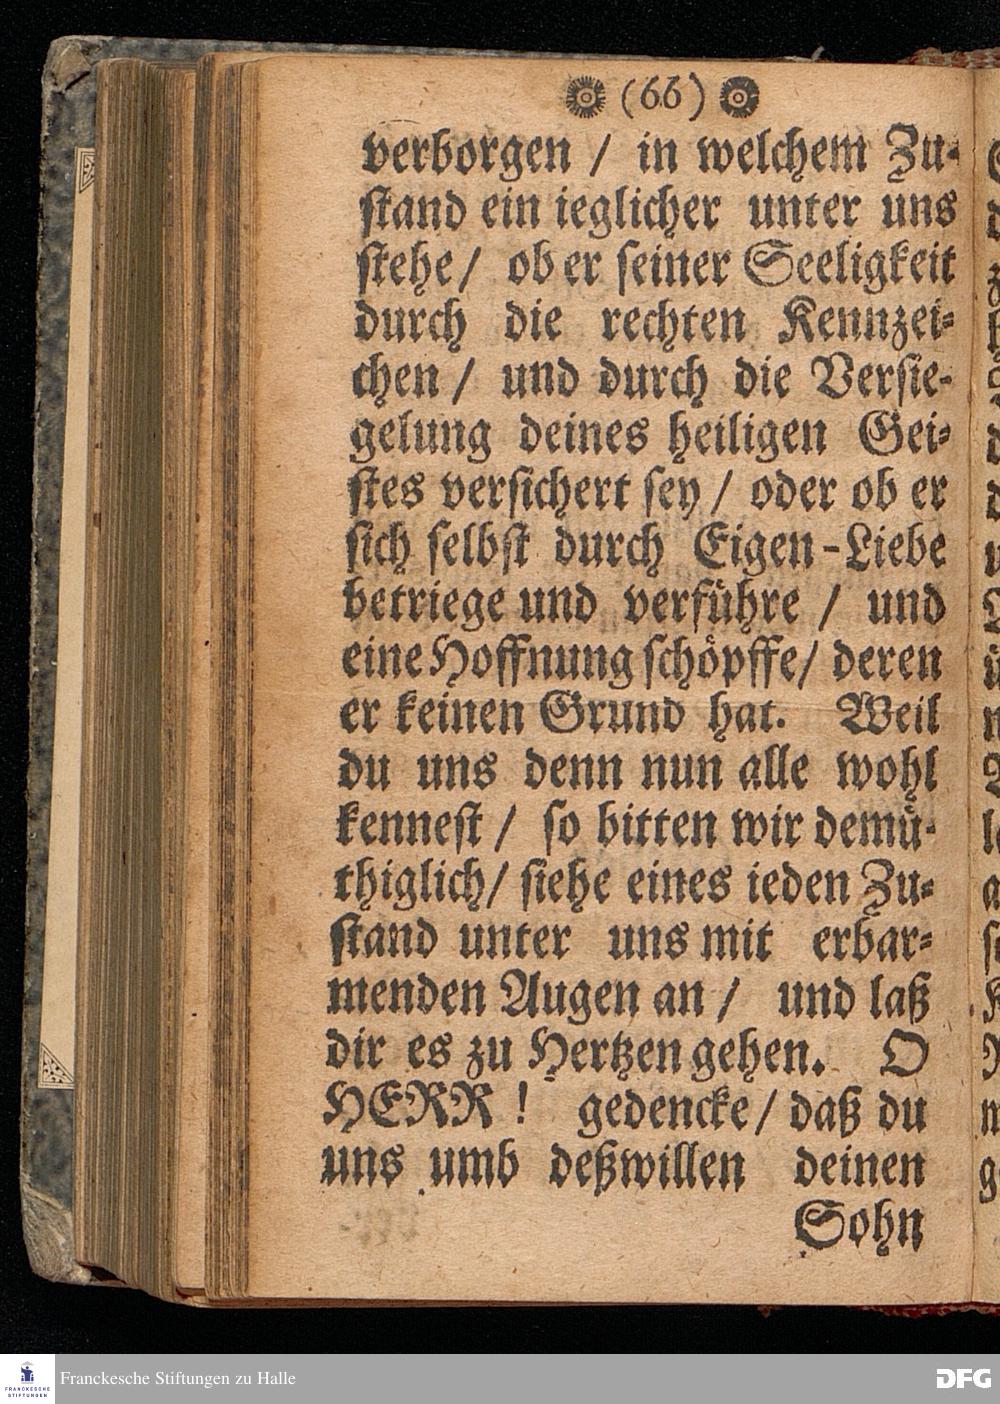 (66)
verborgen / in welchem Zu-
stand ein ieglicher unter uns
stehe / ob er seiner Seeligkeit
durch die rechten Kennzei-
chen / und durch die Versie-
gelung deines heiligen Gei-
stes versichert sey / oder ob er
sich selbst durch Eigen-Liebe
betriege und verführe / und
eine Hoffnung schöpffe / deren
er keinen Grund hat. Weil
du uns denn nun alle wohl
kennest / so bitten wir demü-
thiglich / siehe eines ieden Zu-
stand unter uns mit erbar-
menden Augen an / und laß
dir es zu Hertzen gehen. O
HERR ! gedencke / daß du
uns umb deßwillen deinen
Sohn
FRANCKESCHE
STIFTUNGEN
Franckesche Stiftungen zu Halle
DFG